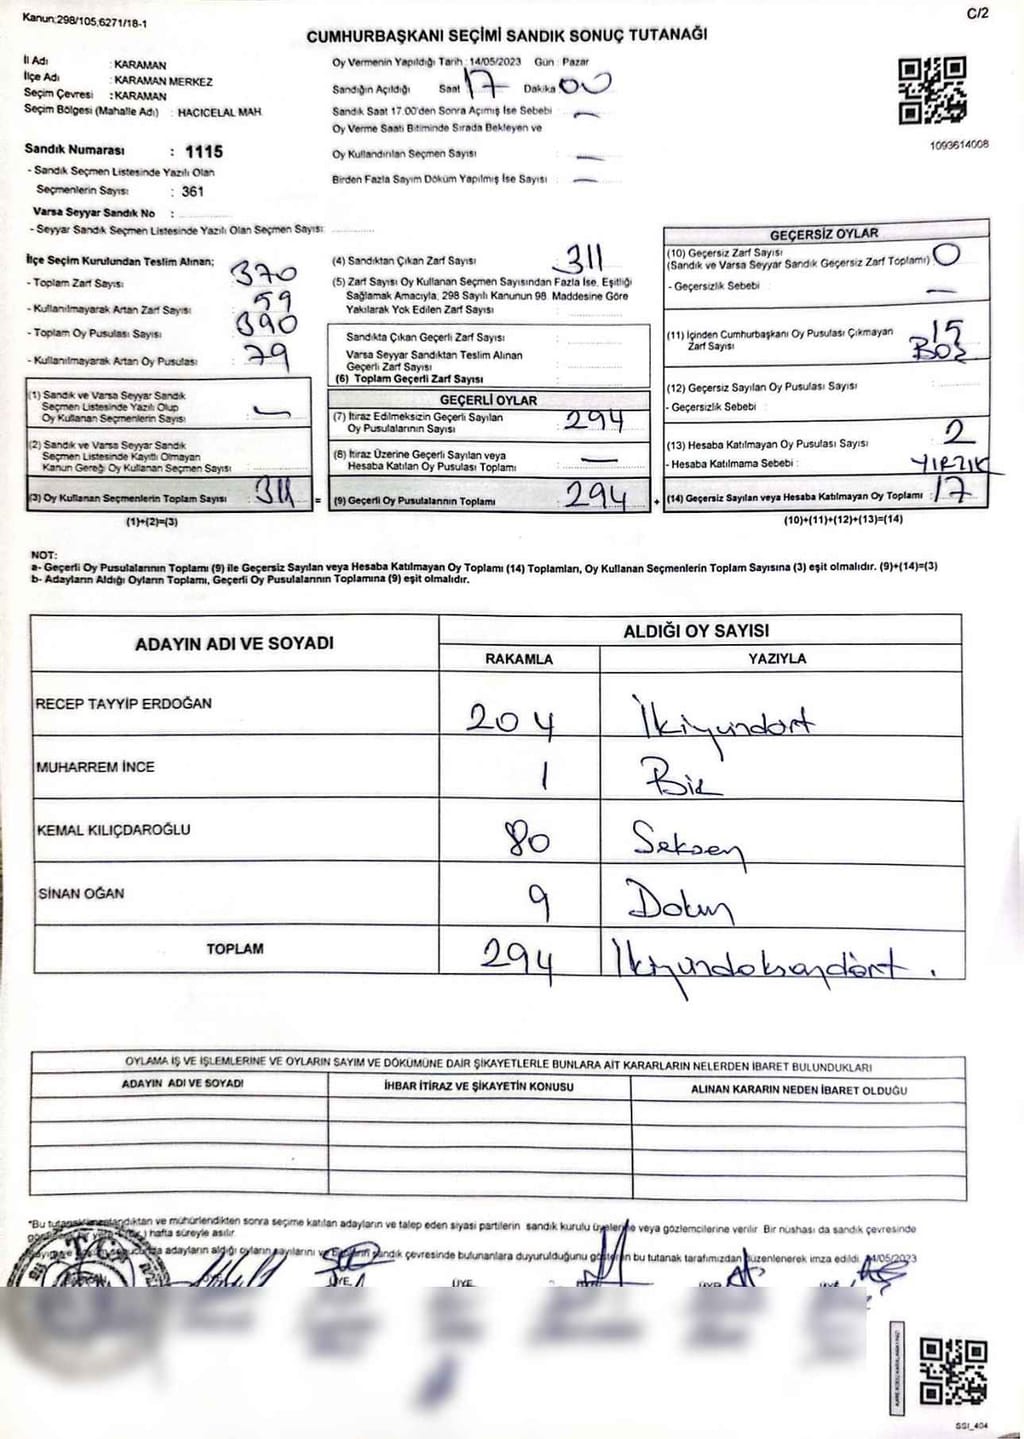 Kanun:298/105,6271/18-1
C/2
CUMHURBAŞKANI SEÇİMİ SANDIK SONUÇ TUTANAĞI
İl Adı : KARAMAN
İlçe Adı : KARAMAN MERKEZ
Seçim Çevresi : KARAMAN
Seçim Bölgesi (Mahalle Adı) : HACICELAL MAH
Sandık Numarası : 1115
- Sandık Seçmen Listesinde Yazılı Olan
Seçmenlerin Sayısı : 361
Varsa Seyyar Sandık No :
- Seyyar Sandık Seçmen Listesinde Yazılı Olan Seçmen Sayısı:
Oy Vermenin Yapıldığı Tarih : 14/05/2023 Gün : Pazar
Sandığın Açıldığı Saat 17 Dakika 00
Sandık Saat 17.00'den Sonra Açımış İse Sebebi : —
Oy Verme Saati Bitiminde Sırada Bekleyen ve
Oy Kullandırılan Seçmen Sayısı : —
Birden Fazla Sayım Döküm Yapılmış İse Sayısı : —
1093614008
İlçe Seçim Kurulundan Teslim Alınan;
- Toplam Zarf Sayısı : 370
- Kullanılmayarak Artan Zarf Sayısı : 59
- Toplam Oy Pusulası Sayısı : 390
- Kullanılmayarak Artan Oy Pusulası : 79
(1) Sandık ve Varsa Seyyar Sandık
Seçmen Listesinde Yazılı Olup
Oy Kullanan Seçmenlerin Sayısı : —
(2) Sandık ve Varsa Seyyar Sandık
Seçmen Listesinde Kayıtlı Olmayan
Kanun Gereği Oy Kullanan Seçmen Sayısı :
(3) Oy Kullanan Seçmenlerin Toplam Sayısı : 311 =
(1)+(2)=(3)
(4) Sandıktan Çıkan Zarf Sayısı : 311
(5) Zarf Sayısı Oy Kullanan Seçmen Sayısından Fazla İse, Eşitliği
Sağlamak Amacıyla, 298 Sayılı Kanunun 98. Maddesine Göre
Yakılarak Yok Edilen Zarf Sayısı :
Sandıkta Çıkan Geçerli Zarf Sayısı :
Varsa Seyyar Sandıktan Teslim Alınan
Geçerli Zarf Sayısı :
(6) Toplam Geçerli Zarf Sayısı :
GEÇERLİ OYLAR
(7) İtiraz Edilmeksizin Geçerli Sayılan
Oy Pusulalarının Sayısı : 294
(8) İtiraz Üzerine Geçerli Sayılan veya
Hesaba Katılan Oy Pusulası Toplamı : —
(9) Geçerli Oy Pusulalarının Toplamı : 294 +
GEÇERSİZ OYLAR
(10) Geçersiz Zarf Sayısı
(Sandık ve Varsa Seyyar Sandık Geçersiz Zarf Toplamı) : 0
- Geçersizlik Sebebi : —
(11) İçinden Cumhurbaşkanı Oy Pusulası Çıkmayan
Zarf Sayısı : 15
BOŞ
(12) Geçersiz Sayılan Oy Pusulası Sayısı :
- Geçersizlik Sebebi :
(13) Hesaba Katılmayan Oy Pusulası Sayısı : 2
- Hesaba Katılmama Sebebi : YIRTIK
(14) Geçersiz Sayılan veya Hesaba Katılmayan Oy Toplamı : 17
(10)+(11)+(12)+(13)=(14)
NOT:
a- Geçerli Oy Pusulalarının Toplamı (9) ile Geçersiz Sayılan veya Hesaba Katılmayan Oy Toplamı (14) Toplamları, Oy Kullanan Seçmenlerin Toplam Sayısına (3) eşit olmalıdır. (9)+(14)=(3)
b- Adayların Aldığı Oyların Toplamı, Geçerli Oy Pusulalarının Toplamına (9) eşit olmalıdır.
ADAYIN ADI VE SOYADI
ALDIĞI OY SAYISI
RAKAMLA YAZIYLA
RECEP TAYYİP ERDOĞAN 204 İkiyüzdört
MUHARREM İNCE 1 Bir
KEMAL KILIÇDAROĞLU 80 Seksen
SİNAN OĞAN 9 Dokuz
TOPLAM 294 İkiyüzdoksandört.
OYLAMA İŞ VE İŞLEMLERİNE VE OYLARIN SAYIM VE DÖKÜMÜNE DAİR ŞİKAYETLERLE BUNLARA AİT KARARLARIN NELERDEN İBARET BULUNDUKLARI
ADAYIN ADI VE SOYADI İHBAR İTİRAZ VE ŞİKAYETİN KONUSU ALINAN KARARIN NEDEN İBARET OLDUĞU
seçime katılan adayların ve talep eden siyasi partilerin sandık kurulu üyelerine veya gözlemcilerine verilir. Bir nüshası da sandık çevresinde
hafta süreyle asılır.
adayların aldığı oyların sayılarını sandık çevresinde bulunanlara duyurulduğunu gösteren bu tutanak tarafımızdan düzenlenerek imza edildi. 14/05/2023
ÜYE ÜYE ÜYE ÜYE ÜYE
SSI_404